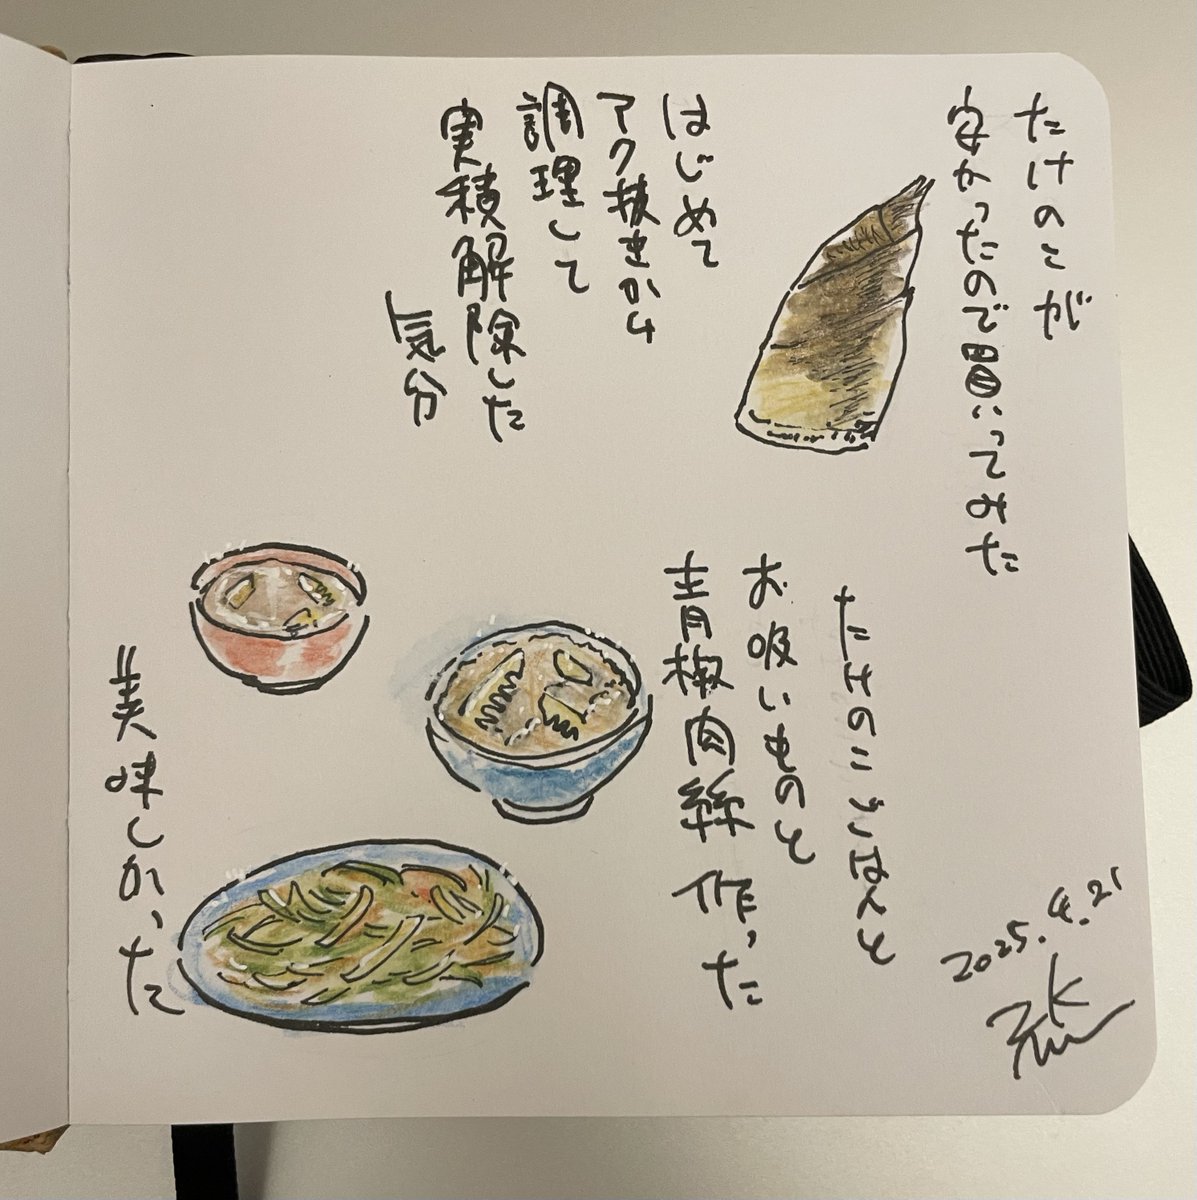 たけのこが
安かったので買ってみた
はじめて
アク抜きから
調理して
実積解除した
気分
たけのこごはんと
お吸いものと
青椒肉絲作った
美味しかった
2025.4.21